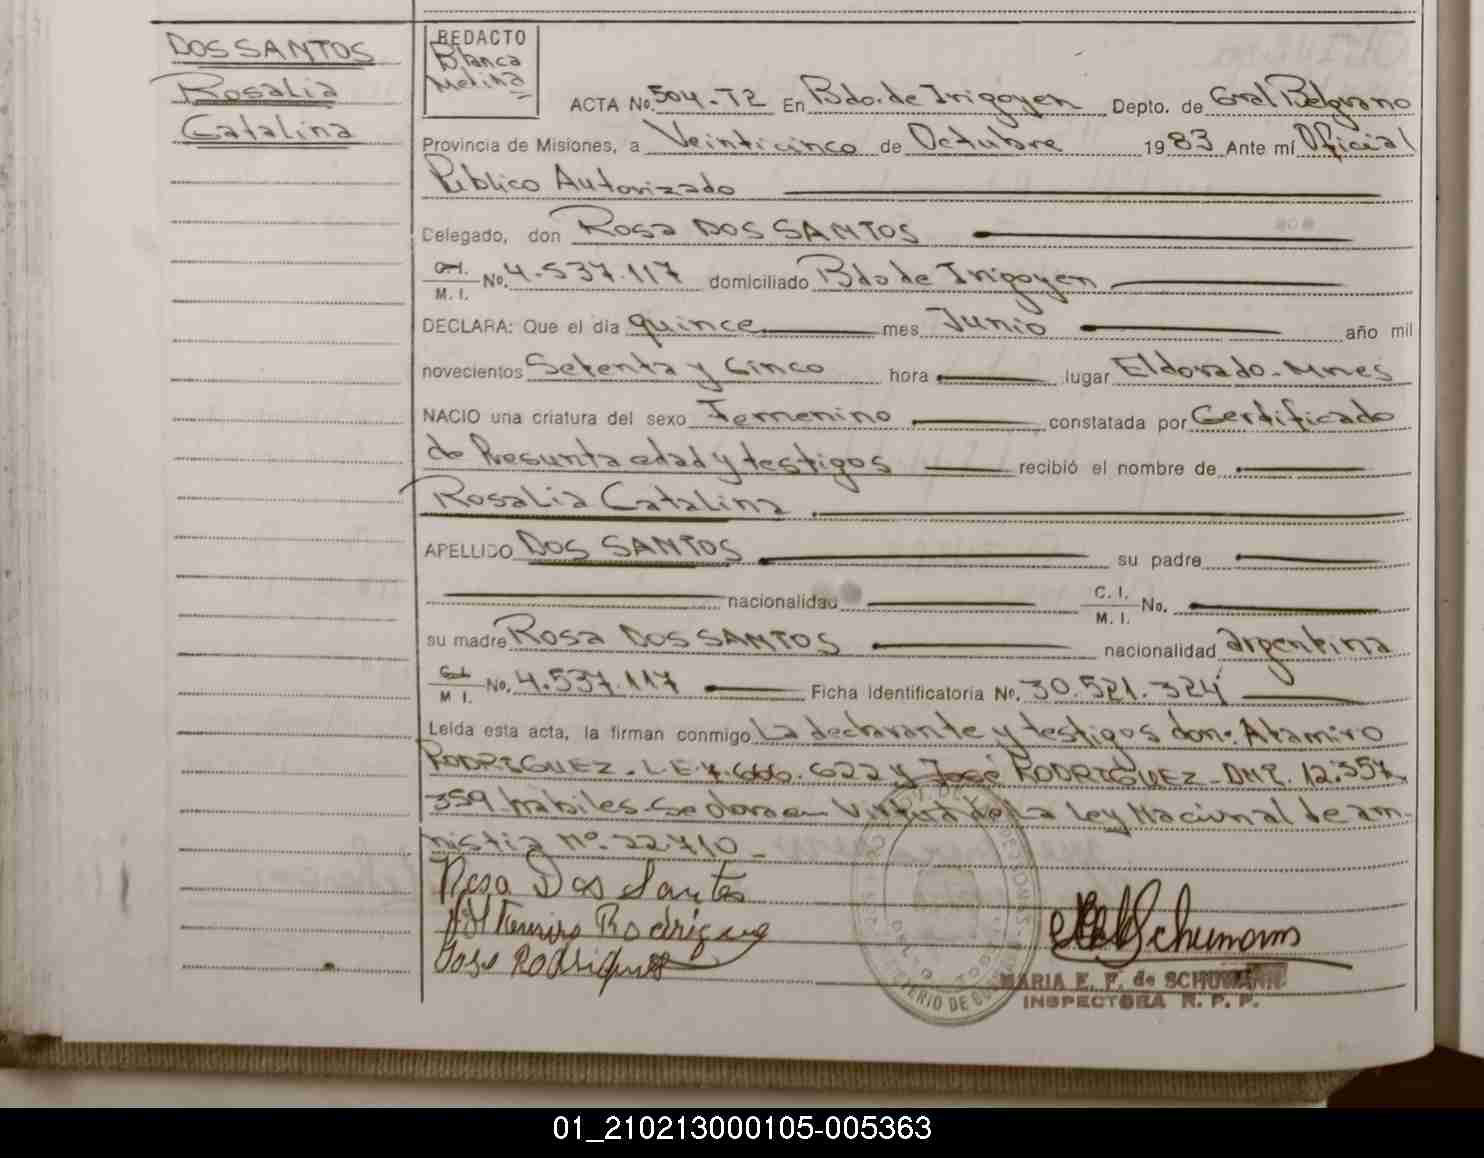 DOS SANTOS
Rosalia
Catalina
REDACTO
Blanca
Medina
ACTA No. 504-T2 En Bdo. de Irigoyen Depto. de Gral Belgrano
Provincia de Misiones, a Veinticinco de Octubre 1983 Ante mí Oficial
Público Autorizado
Delegado, don Rosa DOS SANTOS
C.I. M. I. No. 4.537.117 domiciliado Bdo de Irigoyen
DECLARA: Que el día quince mes Junio año mil
novecientos Setenta y Cinco hora lugar Eldorado-Mnes
NACIO una criatura del sexo Femenino constatada por Certificado
de Presunta edad y testigos recibió el nombre de
Rosalia Catalina
APELLIDO DOS SANTOS su padre
nacionalidad C. I. M. I. No.
su madre Rosa DOS SANTOS nacionalidad argentina
C.I. M I. No. 4.537.117 Ficha Identificatoria No. 30.521.324
Leída esta acta, la firman conmigo La declarante y testigos don: Atamiro
RODRIGUEZ. L.E 7.666.622 y José RODRIGUEZ-DNI. 12.357.
359 habiles-Se labra en Virtud de La Ley Nacional de am-
nistia Nº 22.710-
Rosa Dos Santos
Altemiro Rodrigue
Jose Rodriguez
Schumann
MARIA E. F. de SCHUMANN
INSPECTORA R. P. P.
01_210213000105-005363